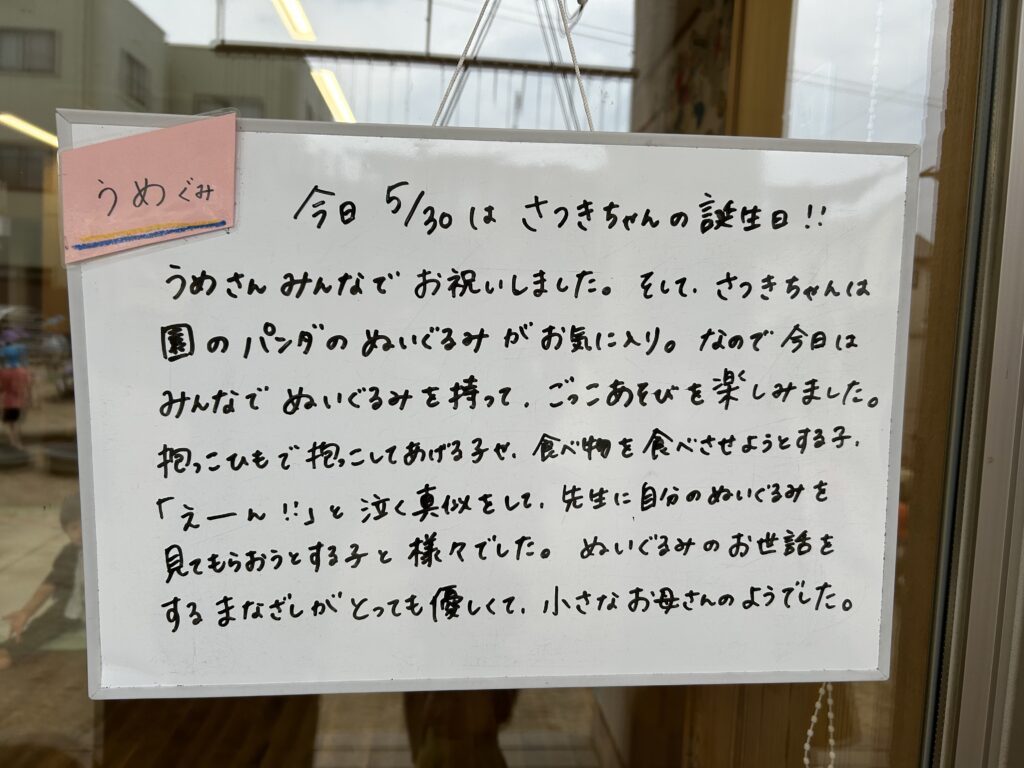 うめぐみ
今日 5/30 は さつきちゃんの誕生日!!
うめさんみんなで お祝いしました。そして、さつきちゃんは
園のパンダのぬいぐるみがお気に入り。なので今日は
みんなでぬいぐるみを持って、ごっこあそびを楽しみました。
抱っこひもで抱っこしてあげる子や、食べ物を食べさせようとする子、
「えーん!!」と泣く真似をして、先生に自分のぬいぐるみを
見てもらおうとする子と様々でした。ぬいぐるみのお世話を
するまなざしがとっても優しくて、小さなお母さんのようでした。